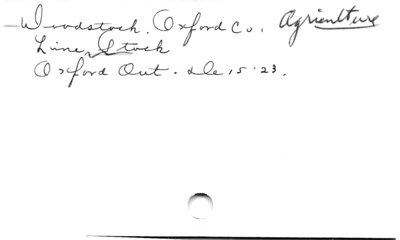 Woodstock. Oxford Co. Agriculture
Line Stock
Oxford Out. De 15.23.